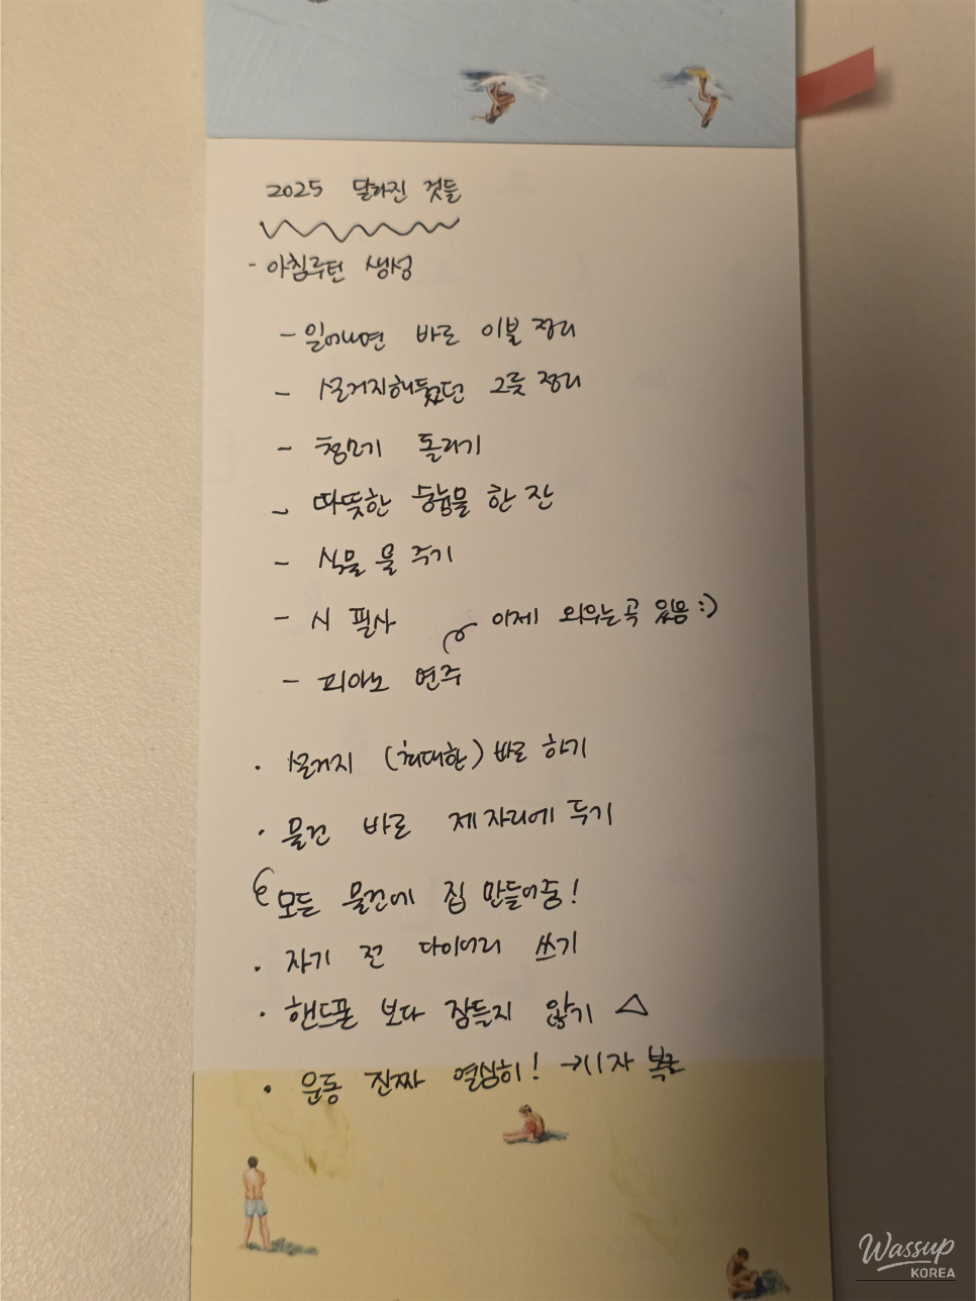 2025 달라진 것들
- 아침루틴 생성
- 일어나면 바로 이불 정리
- 설거지해뒀던 그릇 정리
- 청소기 돌리기
- 따뜻한 숭늉물 한 잔
- 식물 물 주기
- 시 필사
이제 외우는 곡 있음 :)
- 피아노 연주
· 설거지 (최대한) 바로 하기
· 물건 바로 제자리에 두기
모든 물건에 집 만들어줌!
· 자기 전 다이어리 쓰기
· 핸드폰 보다 잠들지 않기 △
· 운동 진짜 열심히! → 11자 복근
Wassup
KOREA